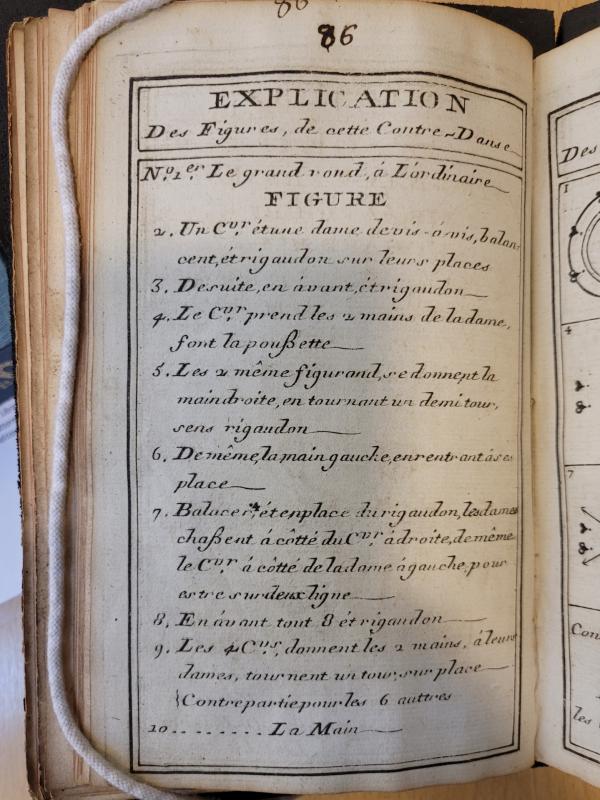 86
86
EXPLICATION
Des Figures, de cette Contre-Danse
N.º 1.er Le grand rond, á L'ordinaire
FIGURE
2. Un C.vr. étune dame devis-á-vis, balan
cent, étrigaudon sur leurs places
3. Desuite, en ávant, étrigaudon
4. Le C.vr. prend les 2 mains de la dame,
font la poußette
5. Les 2 même figurand, se donnent la
main droite, en tournant un demi tour,
sens rigaudon
6. De même, la main gauche, en rentrant á ses
place
7. Balacer, ét en place du rigaudon, les dames
chaßent á côtté du C.vr. á droite, de même
le C.vr. á côtté de la dame á gauche, pour
estre sur deux ligne
8. En ávant tout 8 ét rigaudon
9. Les 4 C.vrs. donnent les 2 mains, á leurs
dames, tournent un tour, sur place
Contrepartie pour les 6 auttres
10........ La Main
Des
1
4
7
Con
les